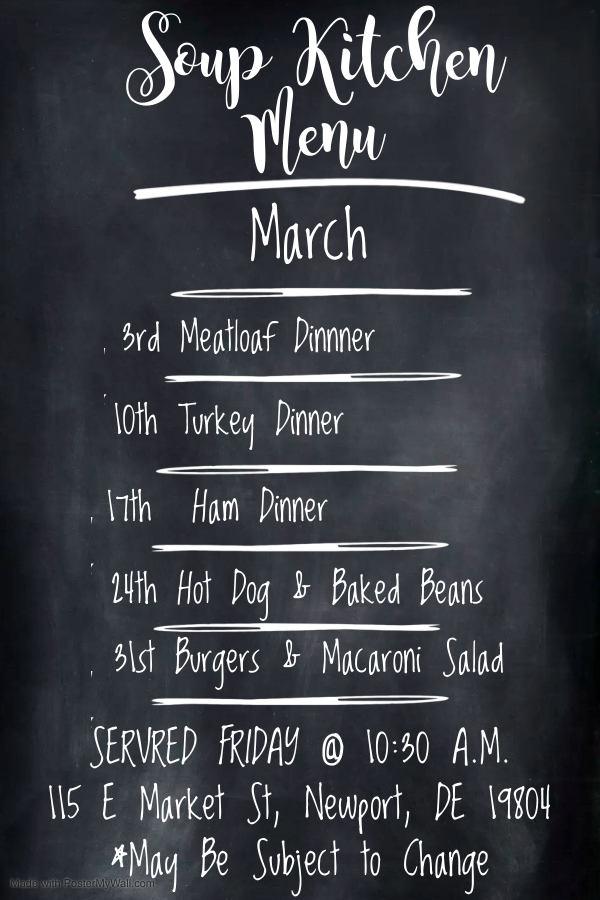 Soup Kitchen
Menu
March
3rd Meatloaf Dinnner
10th Turkey Dinner
17th Ham Dinner
24th Hot Dog & Baked Beans
31st Burgers & Macaroni Salad
SERVRED FRIDAY @ 10:30 A.M.
115 E Market St, Newport, DE 19804
*May Be Subject to Change
Made with PosterMyWall.com